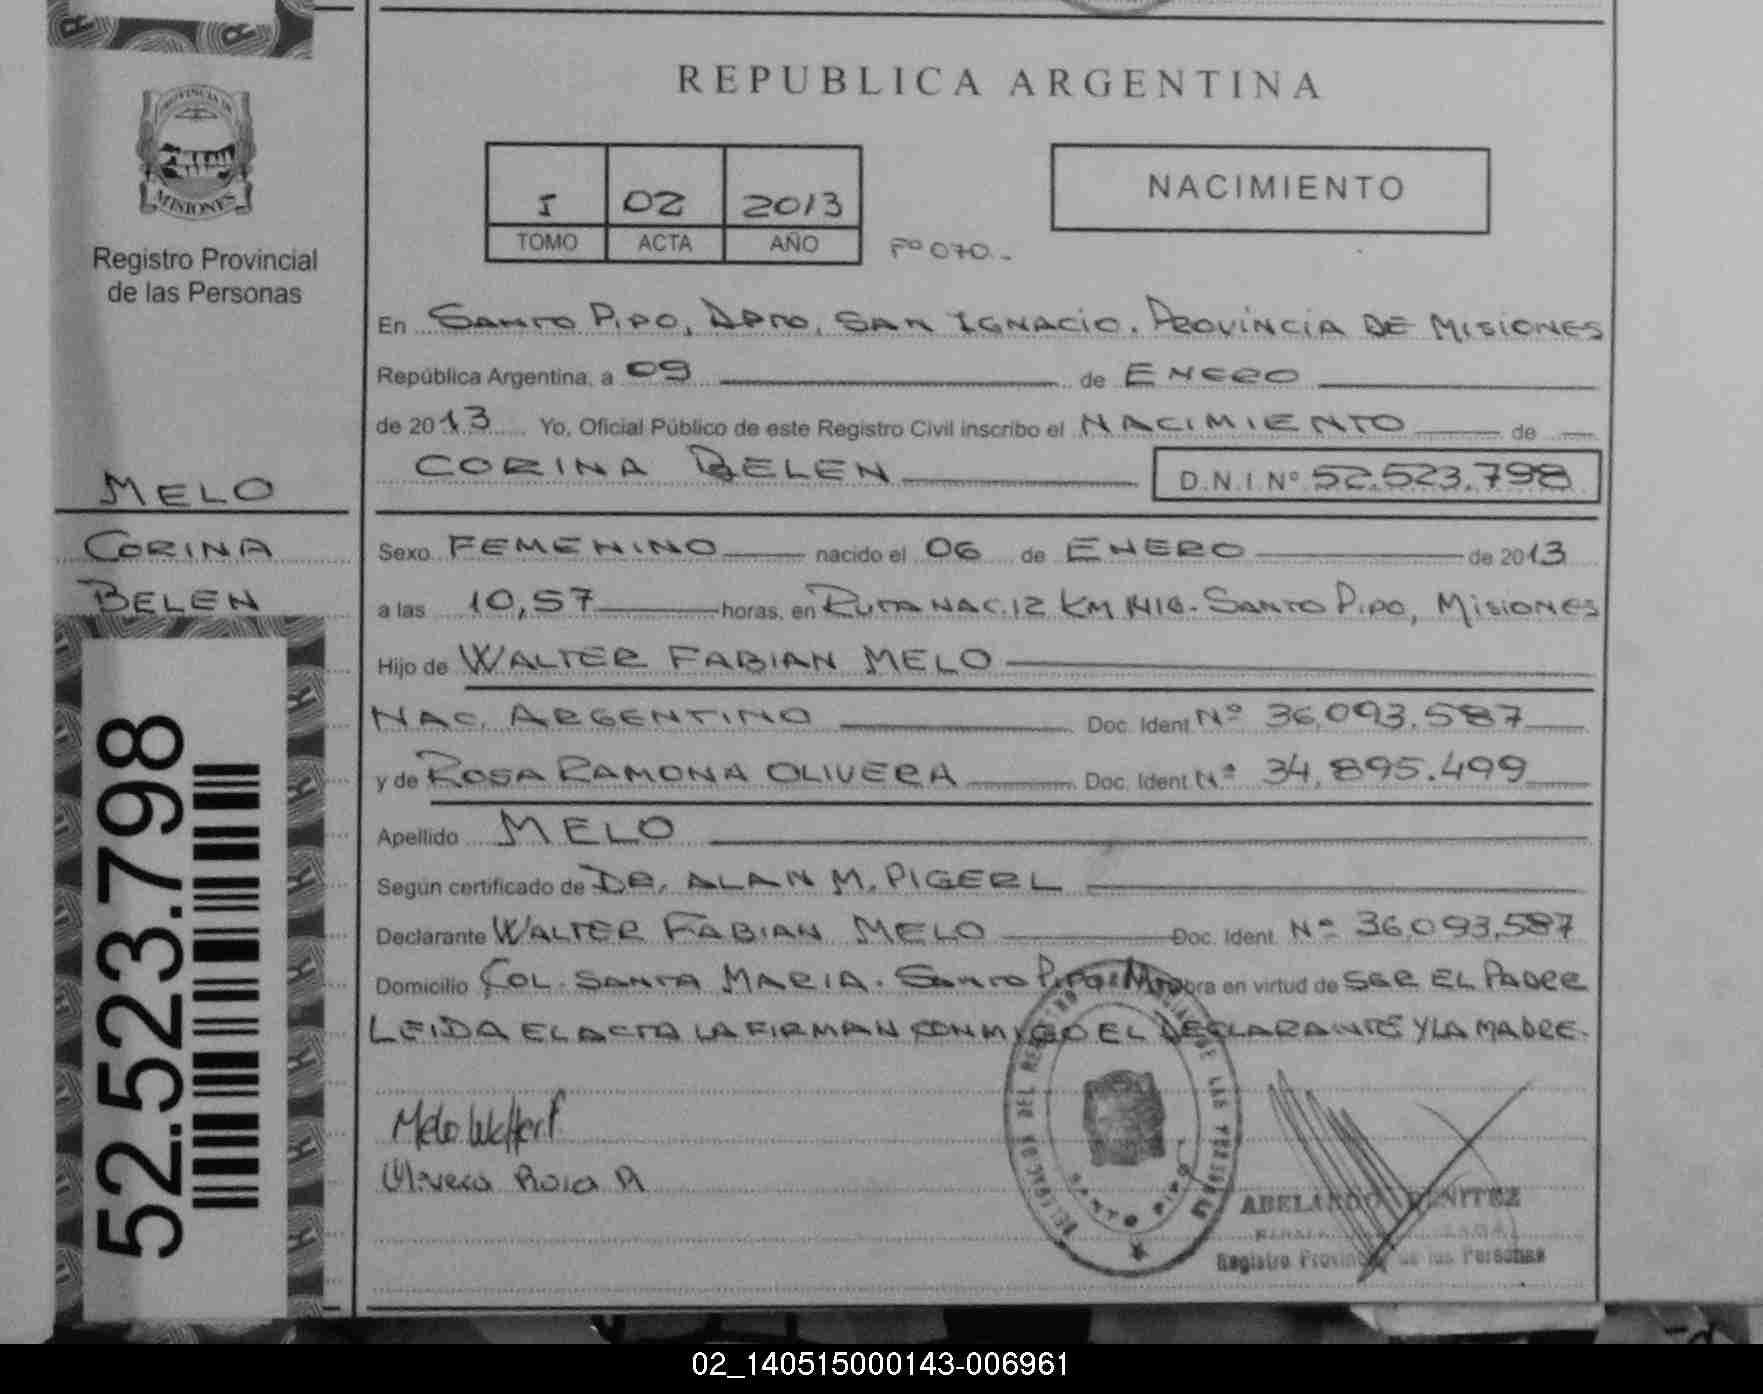 REPUBLICA ARGENTINA
I 02 2013
TOMO ACTA AÑO
Fº 070.-
NACIMIENTO
PROVINCIA DE
MISIONES
Registro Provincial
de las Personas
MELO
CORINA
BELEN
52.523.798
En SANTO PIPO, DPTO. SAN IGNACIO. PROVINCIA DE MISIONES
República Argentina, a 09 de ENERO
de 2013 Yo, Oficial Público de este Registro Civil inscribo el NACIMIENTO de
CORINA BELEN D.N.I. Nº 52.523.798
Sexo FEMENINO nacido el 06 de ENERO de 2013
a las 10,57 horas, en RUTA NAC. 12 KM 1416- SANTO PIPO, MISIONES
Hijo de WALTER FABIAN MELO
NAC. ARGENTINO Doc. Ident Nº 36,093,587
y de ROSA RAMONA OLIVERA Doc. Ident Nº 34,895.499
Apellido MELO
Según certificado de DR. ALAN M. PIGERL
Declarante WALTER FABIAN MELO Doc. Ident. Nº 36,093,587
Domicilio COL. SANTA MARIA. SANTO PIPO obra en virtud de SER EL PADRE
LEIDA EL ACTA LA FIRMAN CONMIGO EL DECLARANTE Y LA MADRE.
Melo Walter F
Olivera Rosa R
DELEGACION DEL REGISTRO DE LAS PERSONAS
SANTO PIPO
ABELARDO BENITEZ
Registro Provincial de las Personas
02_140515000143-006961